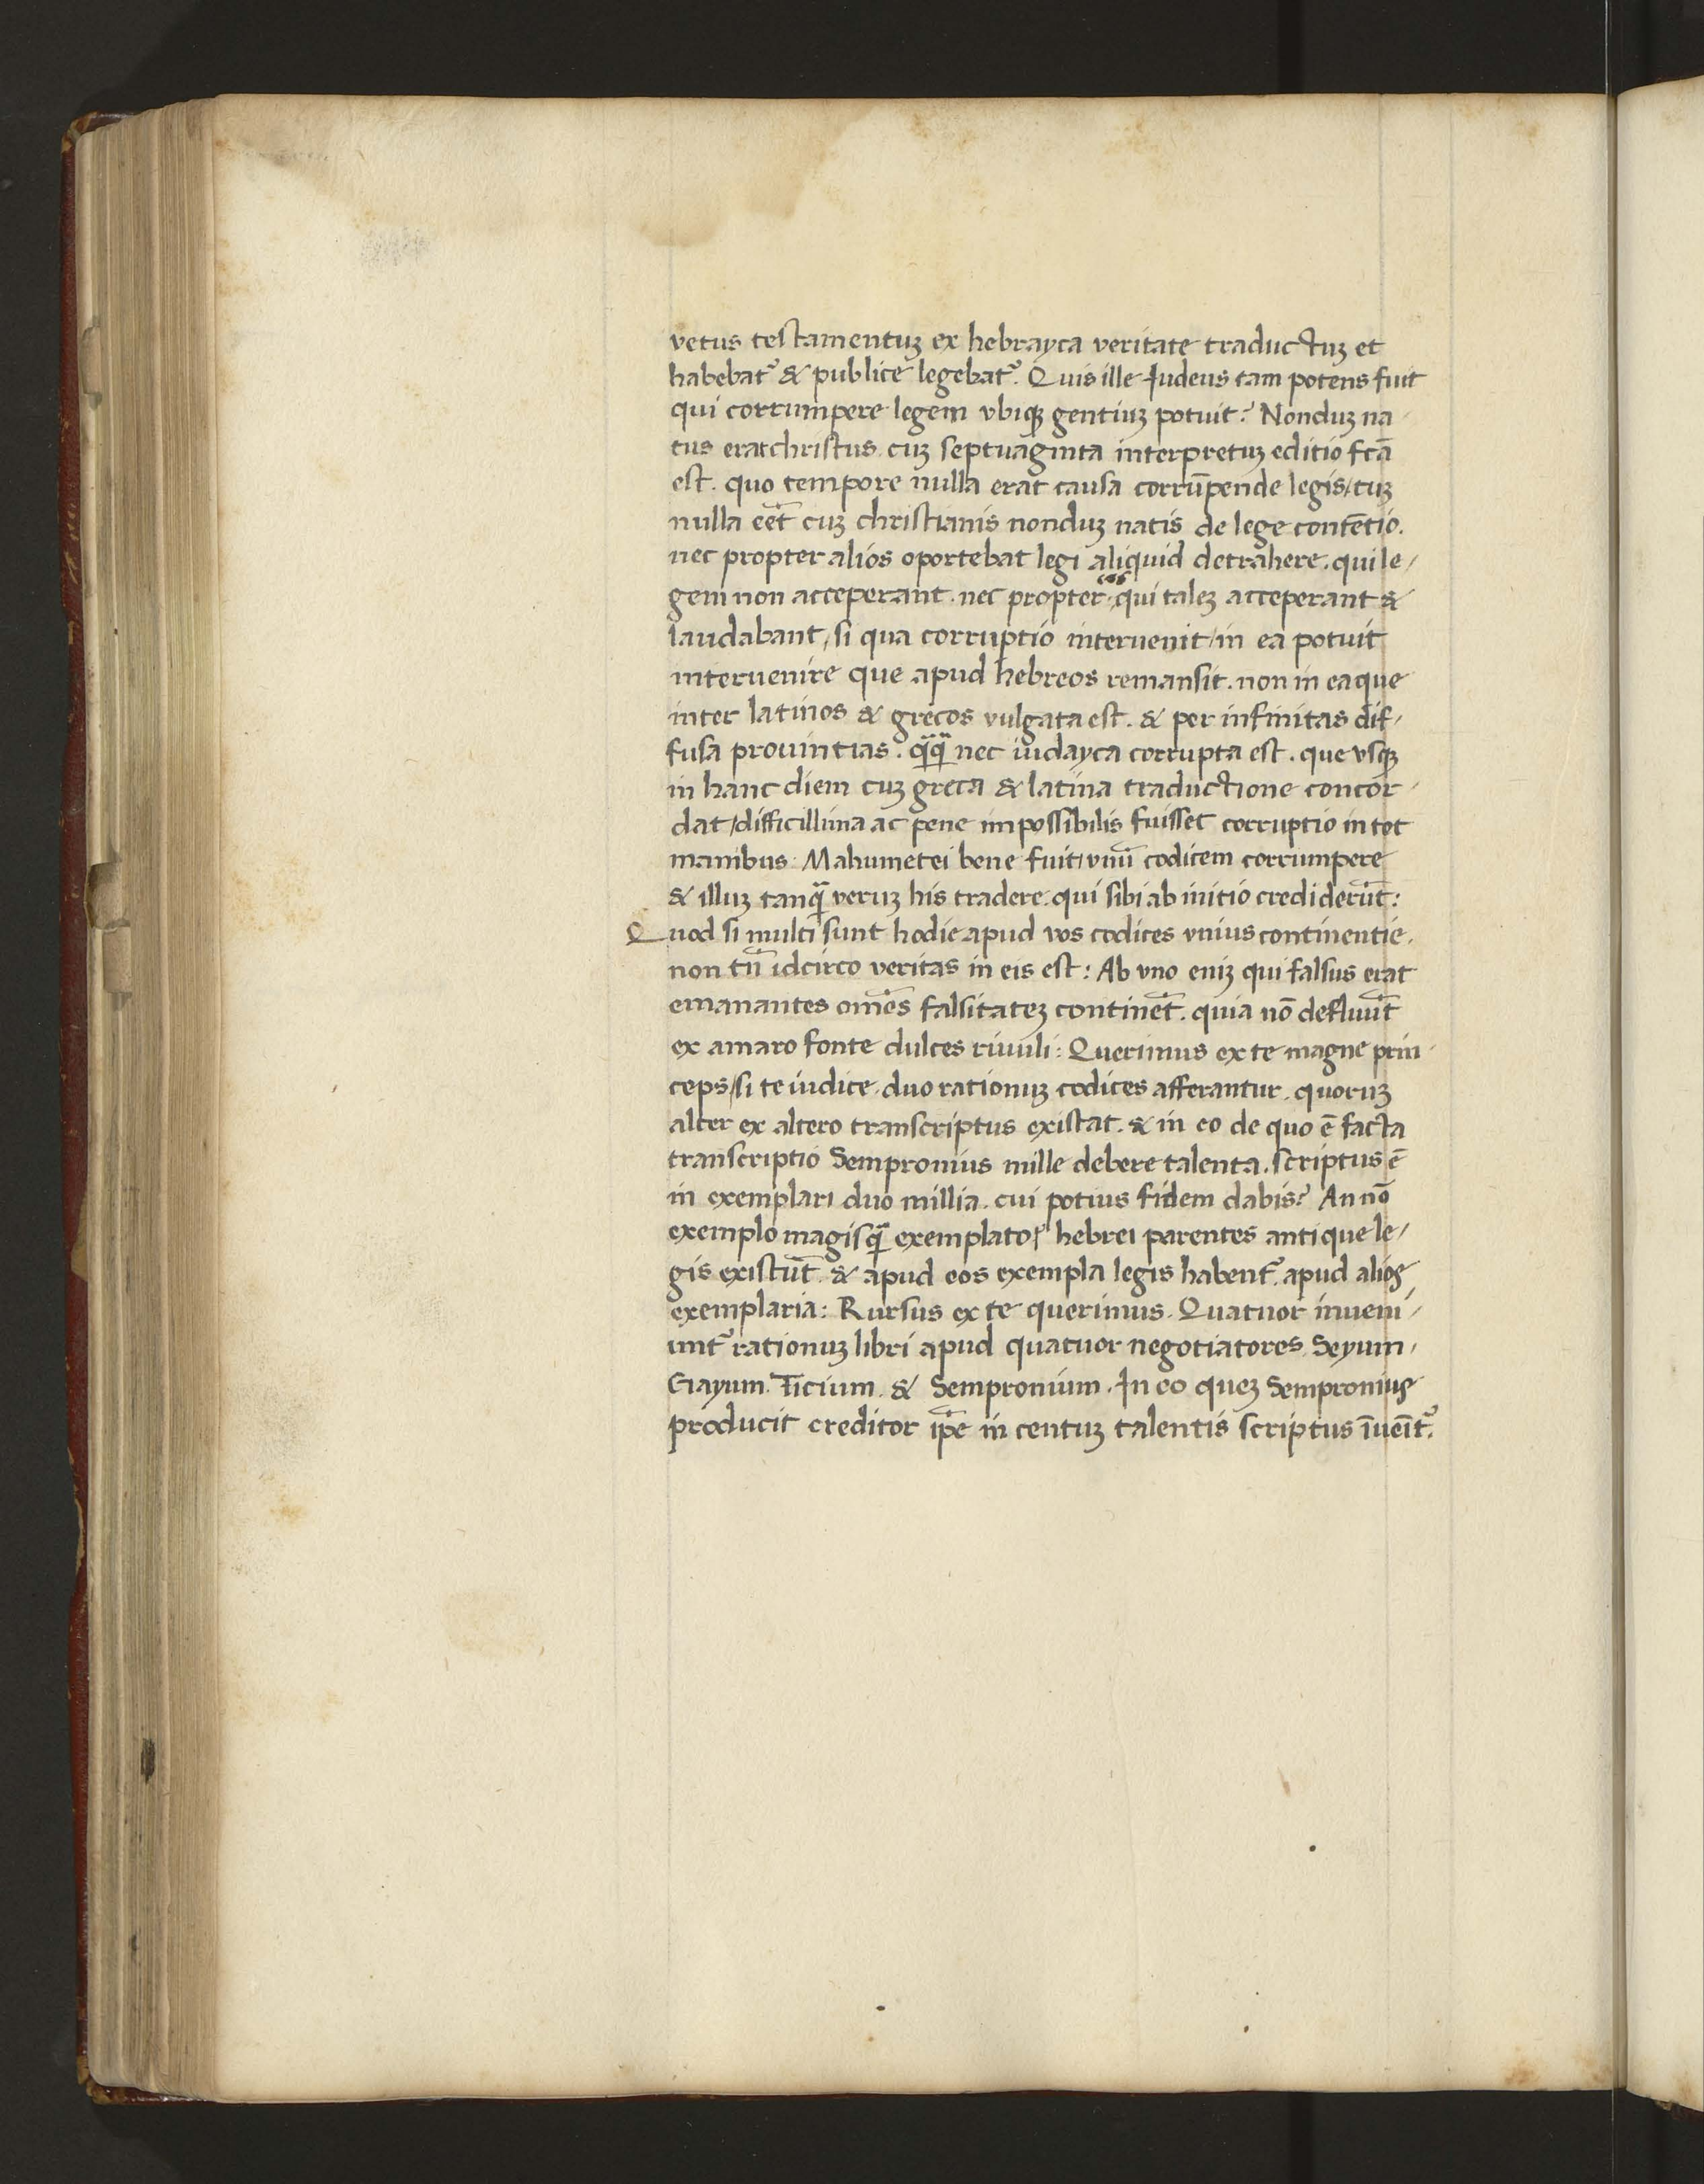 vetus testamentuꝫ ex hebrayca veritate traductuꝫ et
habebat᷑ & publice legebat᷑. Quis ille Judeus tam potens fuit
qui corrumpere legem vbiqꝫ gentiuꝫ potuit? Nonduꝫ na-
tus erat christus cuꝫ septuaginta interpretuꝫ editio fc̄a
est. quo tempore nulla erat causa corrūpende legis/cuꝫ
nulla eēt cuꝫ christianis nonduꝫ natis de lege contētio.
nec propter alios oportebat legi aliquid detrahere. qui le/
gem non acceperant. nec propter eos qui taleꝫ acceperant &
laudabant, si qua corruptio interuenit/in ea potuit
interuenire que apud hebreos remansit. non in ea que
inter latinos & grecos vulgata est. & per infinitas dif/
fusa prouintias. qᷓqᷓ nec iudayca corrupta est. que vsqꝫ
in hanc diem cuꝫ greca & latina traductione concor-
dat/difficillima ac pene impossibilis fuisset corruptio in tot
manibus. Mahumetei bene fuit vnū codicem corrumpere
& illuꝫ tanqᷓ veruꝫ his tradere. qui sibi ab initio crediderūt:
Quod si multi sunt hodie apud vos codices vnius continentie.
non tn̄ idcirco veritas in eis est: Ab vno eniꝫ qui falsus erat
emanantes om̄es falsitateꝫ continēt. quia nō defluūt
ex amaro fonte dulces riuuli: Querimus ex te magne prin-
ceps/si te iudice duo rationuꝫ codices afferantur. quoruꝫ
alter ex altero transcriptus existat. & in eo de quo ē facta
transcriptio Sempronius mille debere talenta. scriptus ē
in exemplari duo millia. cui potius fidem dabis? An nō
exemplo magisqᷓ exemplato? hebrei parentes antique le/
gis existūt. & apud eos exempla legis habent᷑. apud alios
exemplaria: Rursus ex te querimus. Quatuor inueni/
unt᷑ rationuꝫ libri apud quatuor negotiatores Seyum/
Gayum. Ticium. & Sempronium. In eo queꝫ Sempronius
producit creditor ip̄e in centuꝫ talentis scriptus īueīt᷑.